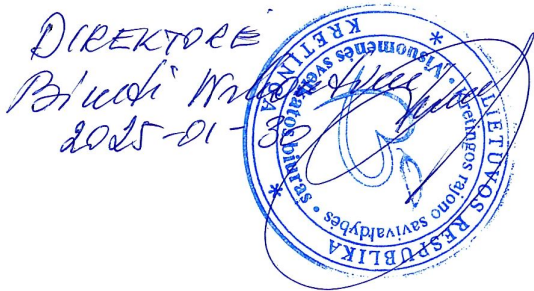 DIREKTORĖ
2025-01-30
LIETUVOS RESPUBLIKA * KRETINGA *
Kretingos rajono savivaldybės • Visuomenės sveikatos biuras •